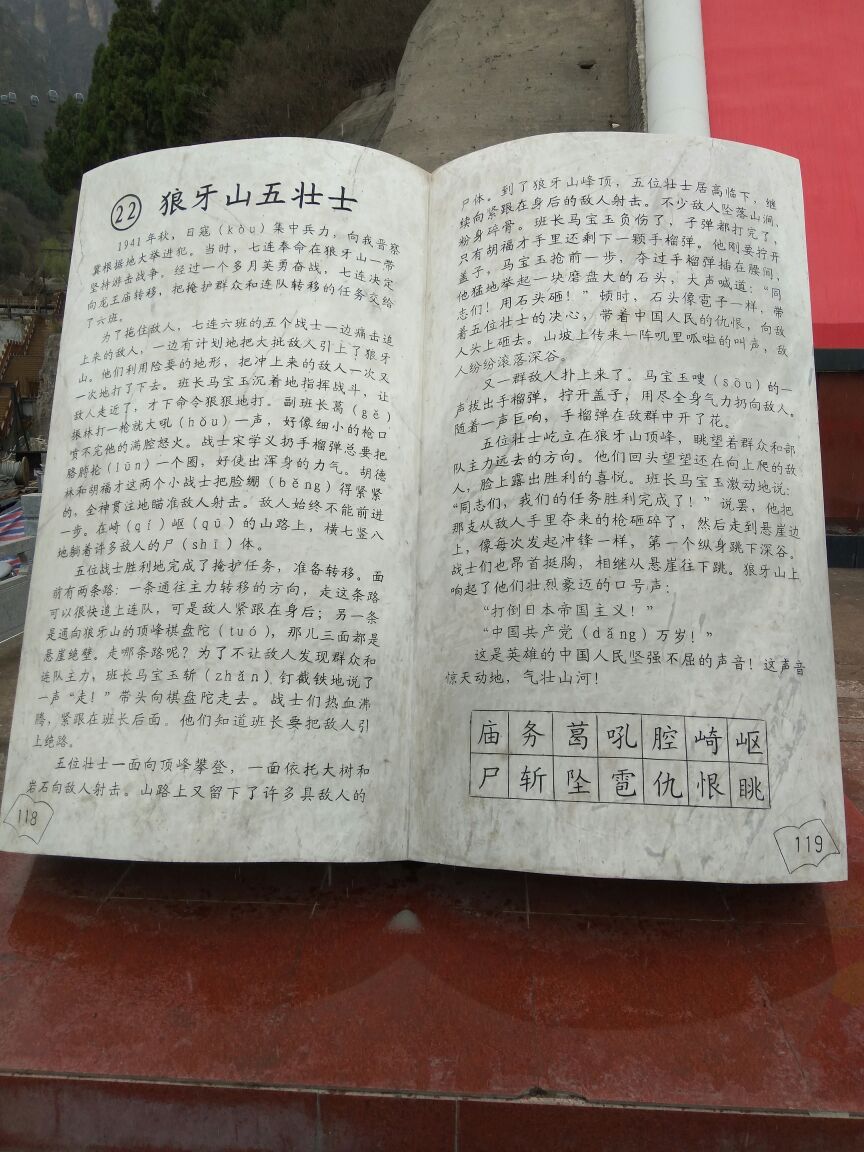 22 狼牙山五壮士
1941年秋，日寇（kòu）集中兵力，向我晋察
冀根据地大举进犯。当时，七连奉命在狼牙山一带
坚持游击战争。经过一个多月英勇奋战，七连决定
向龙王庙转移，把掩护群众和连队转移的任务交给
了六班。
为了拖住敌人，七连六班的五个战士一边痛击追
上来的敌人，一边有计划地把大批敌人引上了狼牙
山。他们利用险要的地形，把冲上来的敌人一次又
一次地打了下去。班长马宝玉沉着地指挥战斗，让
敌人走近了，才下命令狠狠地打。副班长葛（gě）
振林打一枪就大吼（hǒu）一声，好像细小的枪口
喷不完他的满腔怒火。战士宋学义扔手榴弹总要把
胳膊抡（lūn）一个圈，好使出浑身的力气。胡德
林和胡福才这两个小战士把脸绷（běng）得紧紧
的，全神贯注地瞄准敌人射击。敌人始终不能前进
一步。在崎（qí）岖（qū）的山路上，横七竖八
地躺着许多敌人的尸（shī）体。
五位战士胜利地完成了掩护任务，准备转移。面
前有两条路：一条通往主力转移的方向，走这条路
可以很快追上连队，可是敌人紧跟在身后；另一条
是通向狼牙山的顶峰棋盘陀（tuó），那儿三面都是
悬崖绝壁。走哪条路呢？为了不让敌人发现群众和
连队主力，班长马宝玉斩（zhǎn）钉截铁地说了
一声“走！”带头向棋盘陀走去。战士们热血沸
腾，紧跟在班长后面。他们知道班长要把敌人引
上绝路。
五位壮士一面向顶峰攀登，一面依托大树和
岩石向敌人射击。山路上又留下了许多具敌人的
118
尸体。到了狼牙山峰顶，五位壮士居高临下，继
续向紧跟在身后的敌人射击。不少敌人坠落山涧，
粉身碎骨。班长马宝玉负伤了，子弹都打完了，
只有胡福才手里还剩下一颗手榴弹。他刚要拧开
盖子，马宝玉抢前一步，夺过手榴弹插在腰间，
他猛地举起一块磨盘大的石头，大声喊道：“同
志们！用石头砸！”顿时，石头像雹子一样，带
着五位壮士的决心，带着中国人民的仇恨，向敌
人头上砸去。山坡上传来一阵叽里呱啦的叫声，敌
人纷纷滚落深谷。
又一群敌人扑上来了。马宝玉嗖（sōu）的一
声拔出手榴弹，拧开盖子，用尽全身气力扔向敌人。
随着一声巨响，手榴弹在敌群中开了花。
五位壮士屹立在狼牙山顶峰，眺望着群众和部
队主力远去的方向。他们回头望望还在向上爬的敌
人，脸上露出胜利的喜悦。班长马宝玉激动地说：
“同志们，我们的任务胜利完成了！”说罢，他把
那支从敌人手里夺来的枪砸碎了，然后走到悬崖边
上，像每次发起冲锋一样，第一个纵身跳下深谷。
战士们也昂首挺胸，相继从悬崖往下跳。狼牙山上
响起了他们壮烈豪迈的口号声：
“打倒日本帝国主义！”
“中国共产党（dǎng）万岁！”
这是英雄的中国人民坚强不屈的声音！这声音
惊天动地，气壮山河！
庙务葛吼腔崎岖
尸斩坠雹仇恨眺
119